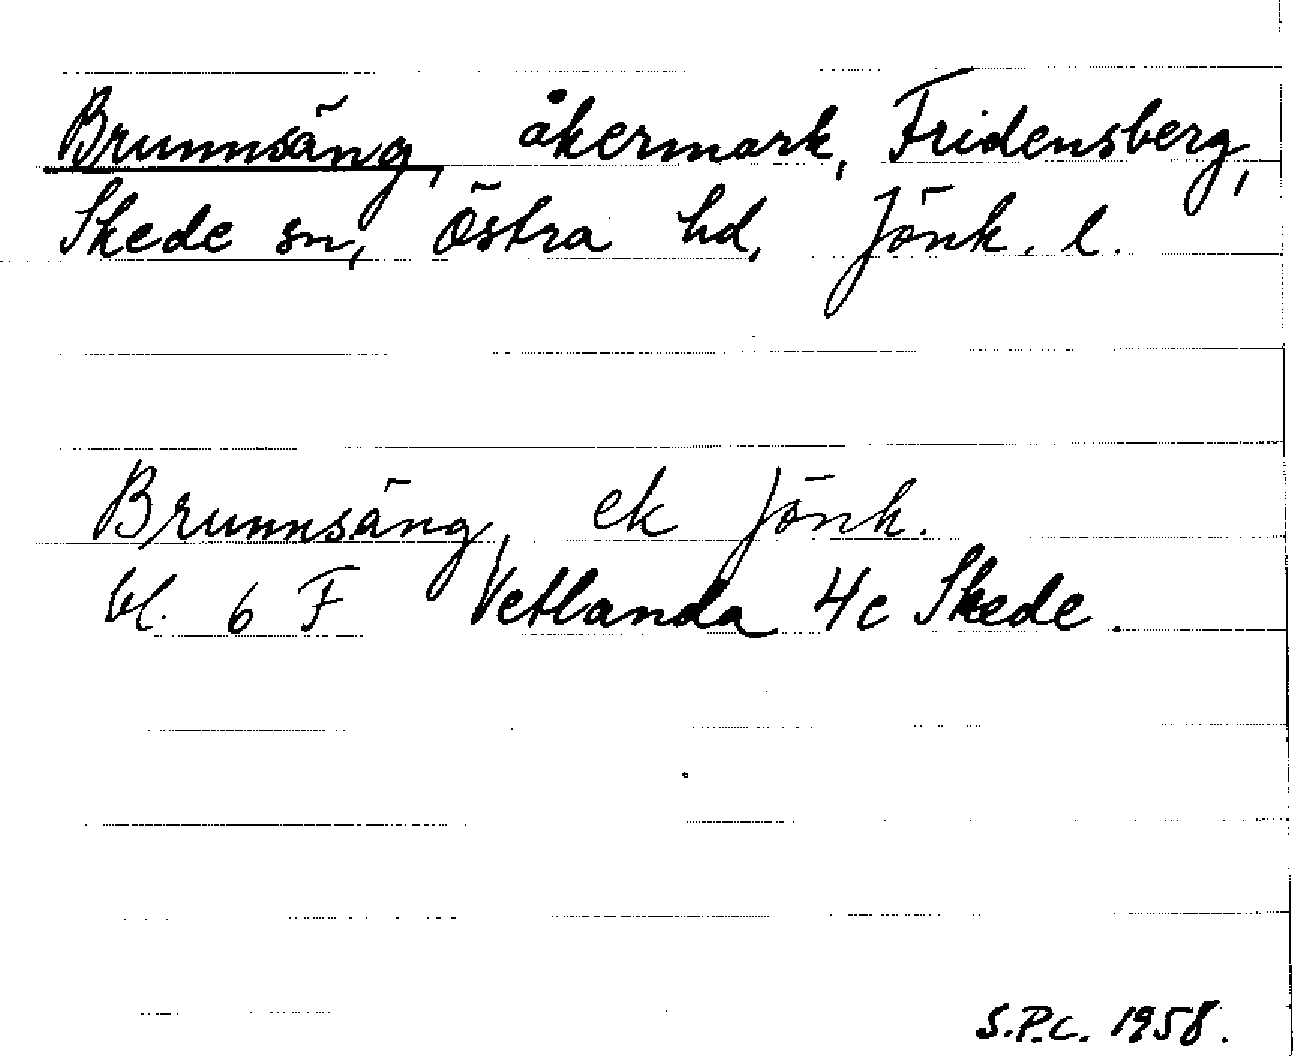 Brunnsäng, åkermark, Fridensberg,
Skede sn, Östra hd, Jönk. l.
Brunnsäng, ek Jönk.
bl. 6 F Vetlanda 4c Skede.
S.P.C. 1958.